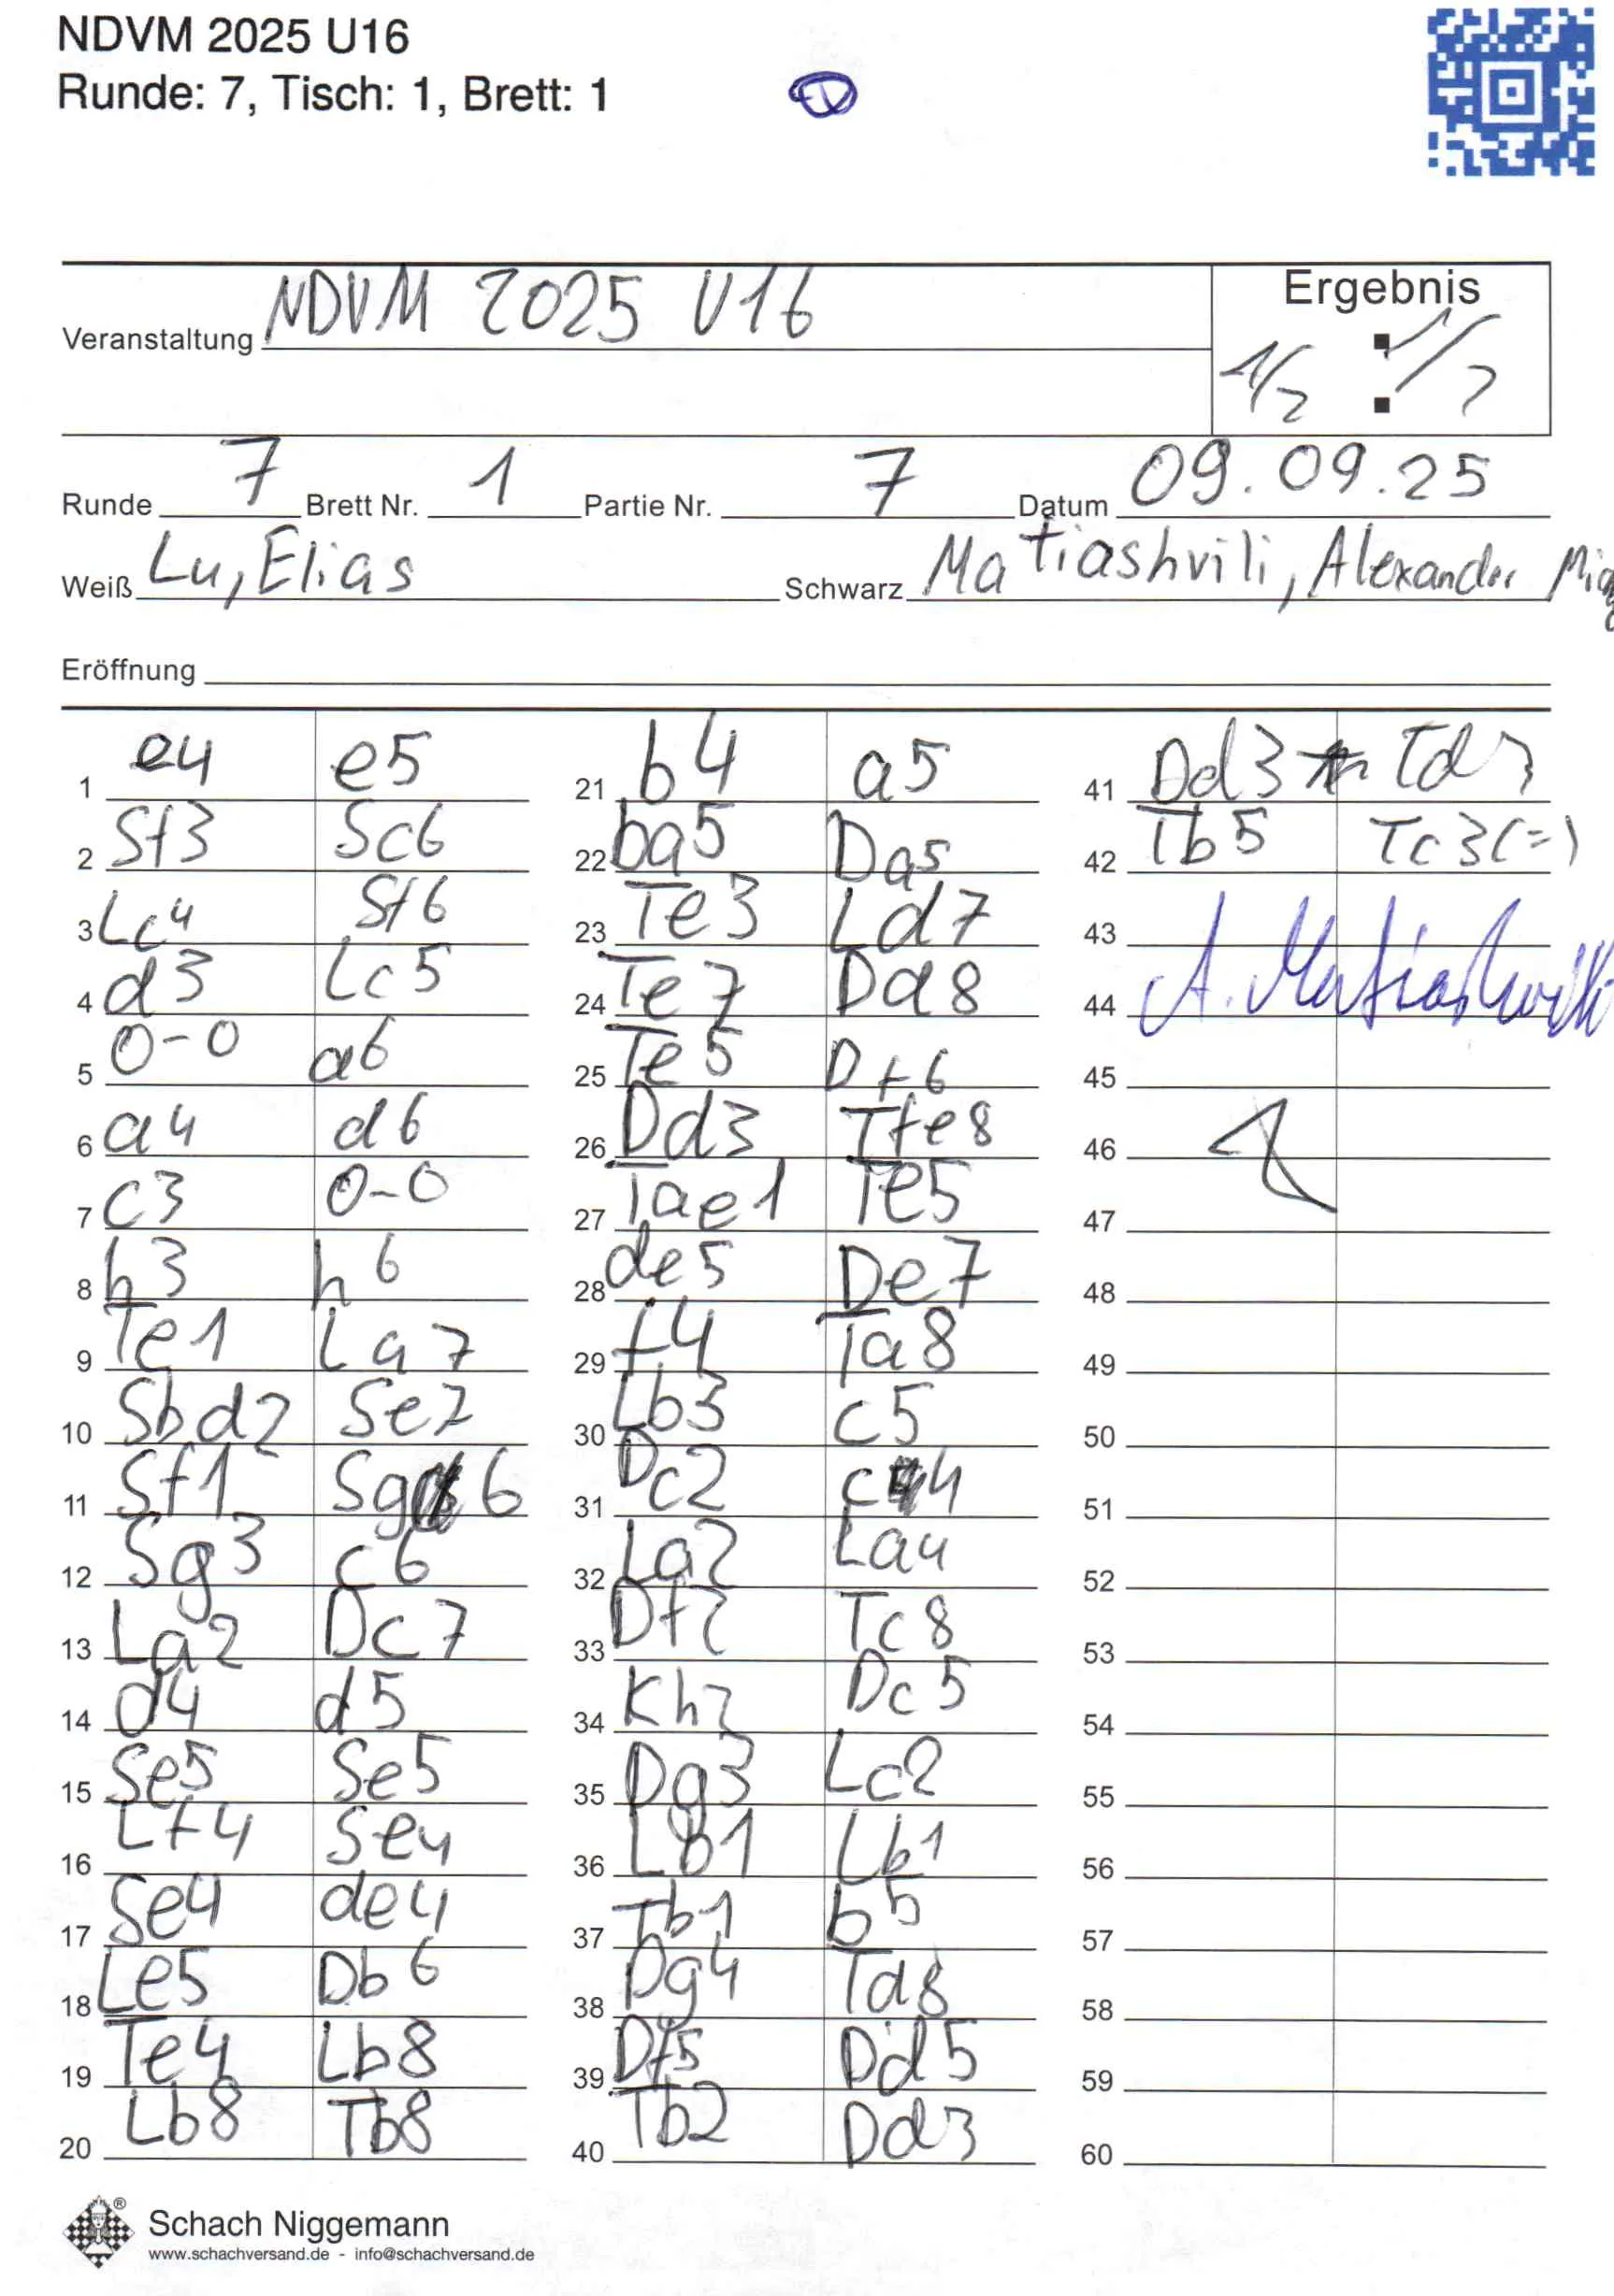 NDVM 2025 U16
Runde: 7, Tisch: 1, Brett: 1
Ergebnis
Veranstaltung NDVM 2025 U16
1/2 : 1/2
Runde 7 Brett Nr. 1 Partie Nr. 7 Datum 09.09.25
Weiß Lu, Elias Schwarz Matiashvili, Alexander
Eröffnung
1 e4 e5 21 b4 a5 41 Dd3 Td3
2 Sf3 Sc6 22 ba5 Da5 42 Tb5 Tc3(=)
3 Lc4 Sf6 23 Te3 Ld7 43
4 d3 Lc5 24 Te7 Dd8 44 A. Matiashvili
5 0-0 a6 25 Te5 Df6 45
6 a4 d6 26 Dd3 Tfe8 46
7 c3 0-0 27 Tae1 Te5 47
8 h3 h6 28 de5 De7 48
9 Te1 La7 29 f4 Ta8 49
10 Sbd2 Se7 30 Lb3 c5 50
11 Sf1 Sg6 31 Dc2 c4 51
12 Sg3 c6 32 La2 La4 52
13 La2 Dc7 33 Df2 Tc8 53
14 d4 d5 34 Kh2 Dc5 54
15 Se5 Se5 35 Dg3 Lc2 55
16 Lf4 Se4 36 Lb1 Lb1 56
17 Se4 de4 37 Tb1 b5 57
18 Le5 Db6 38 Dg4 Td8 58
19 Te4 Lb8 39 Df5 Dd5 59
20 Lb8 Tb8 40 Tb2 Dd3 60
Schach Niggemann
www.schachversand.de - info@schachversand.de